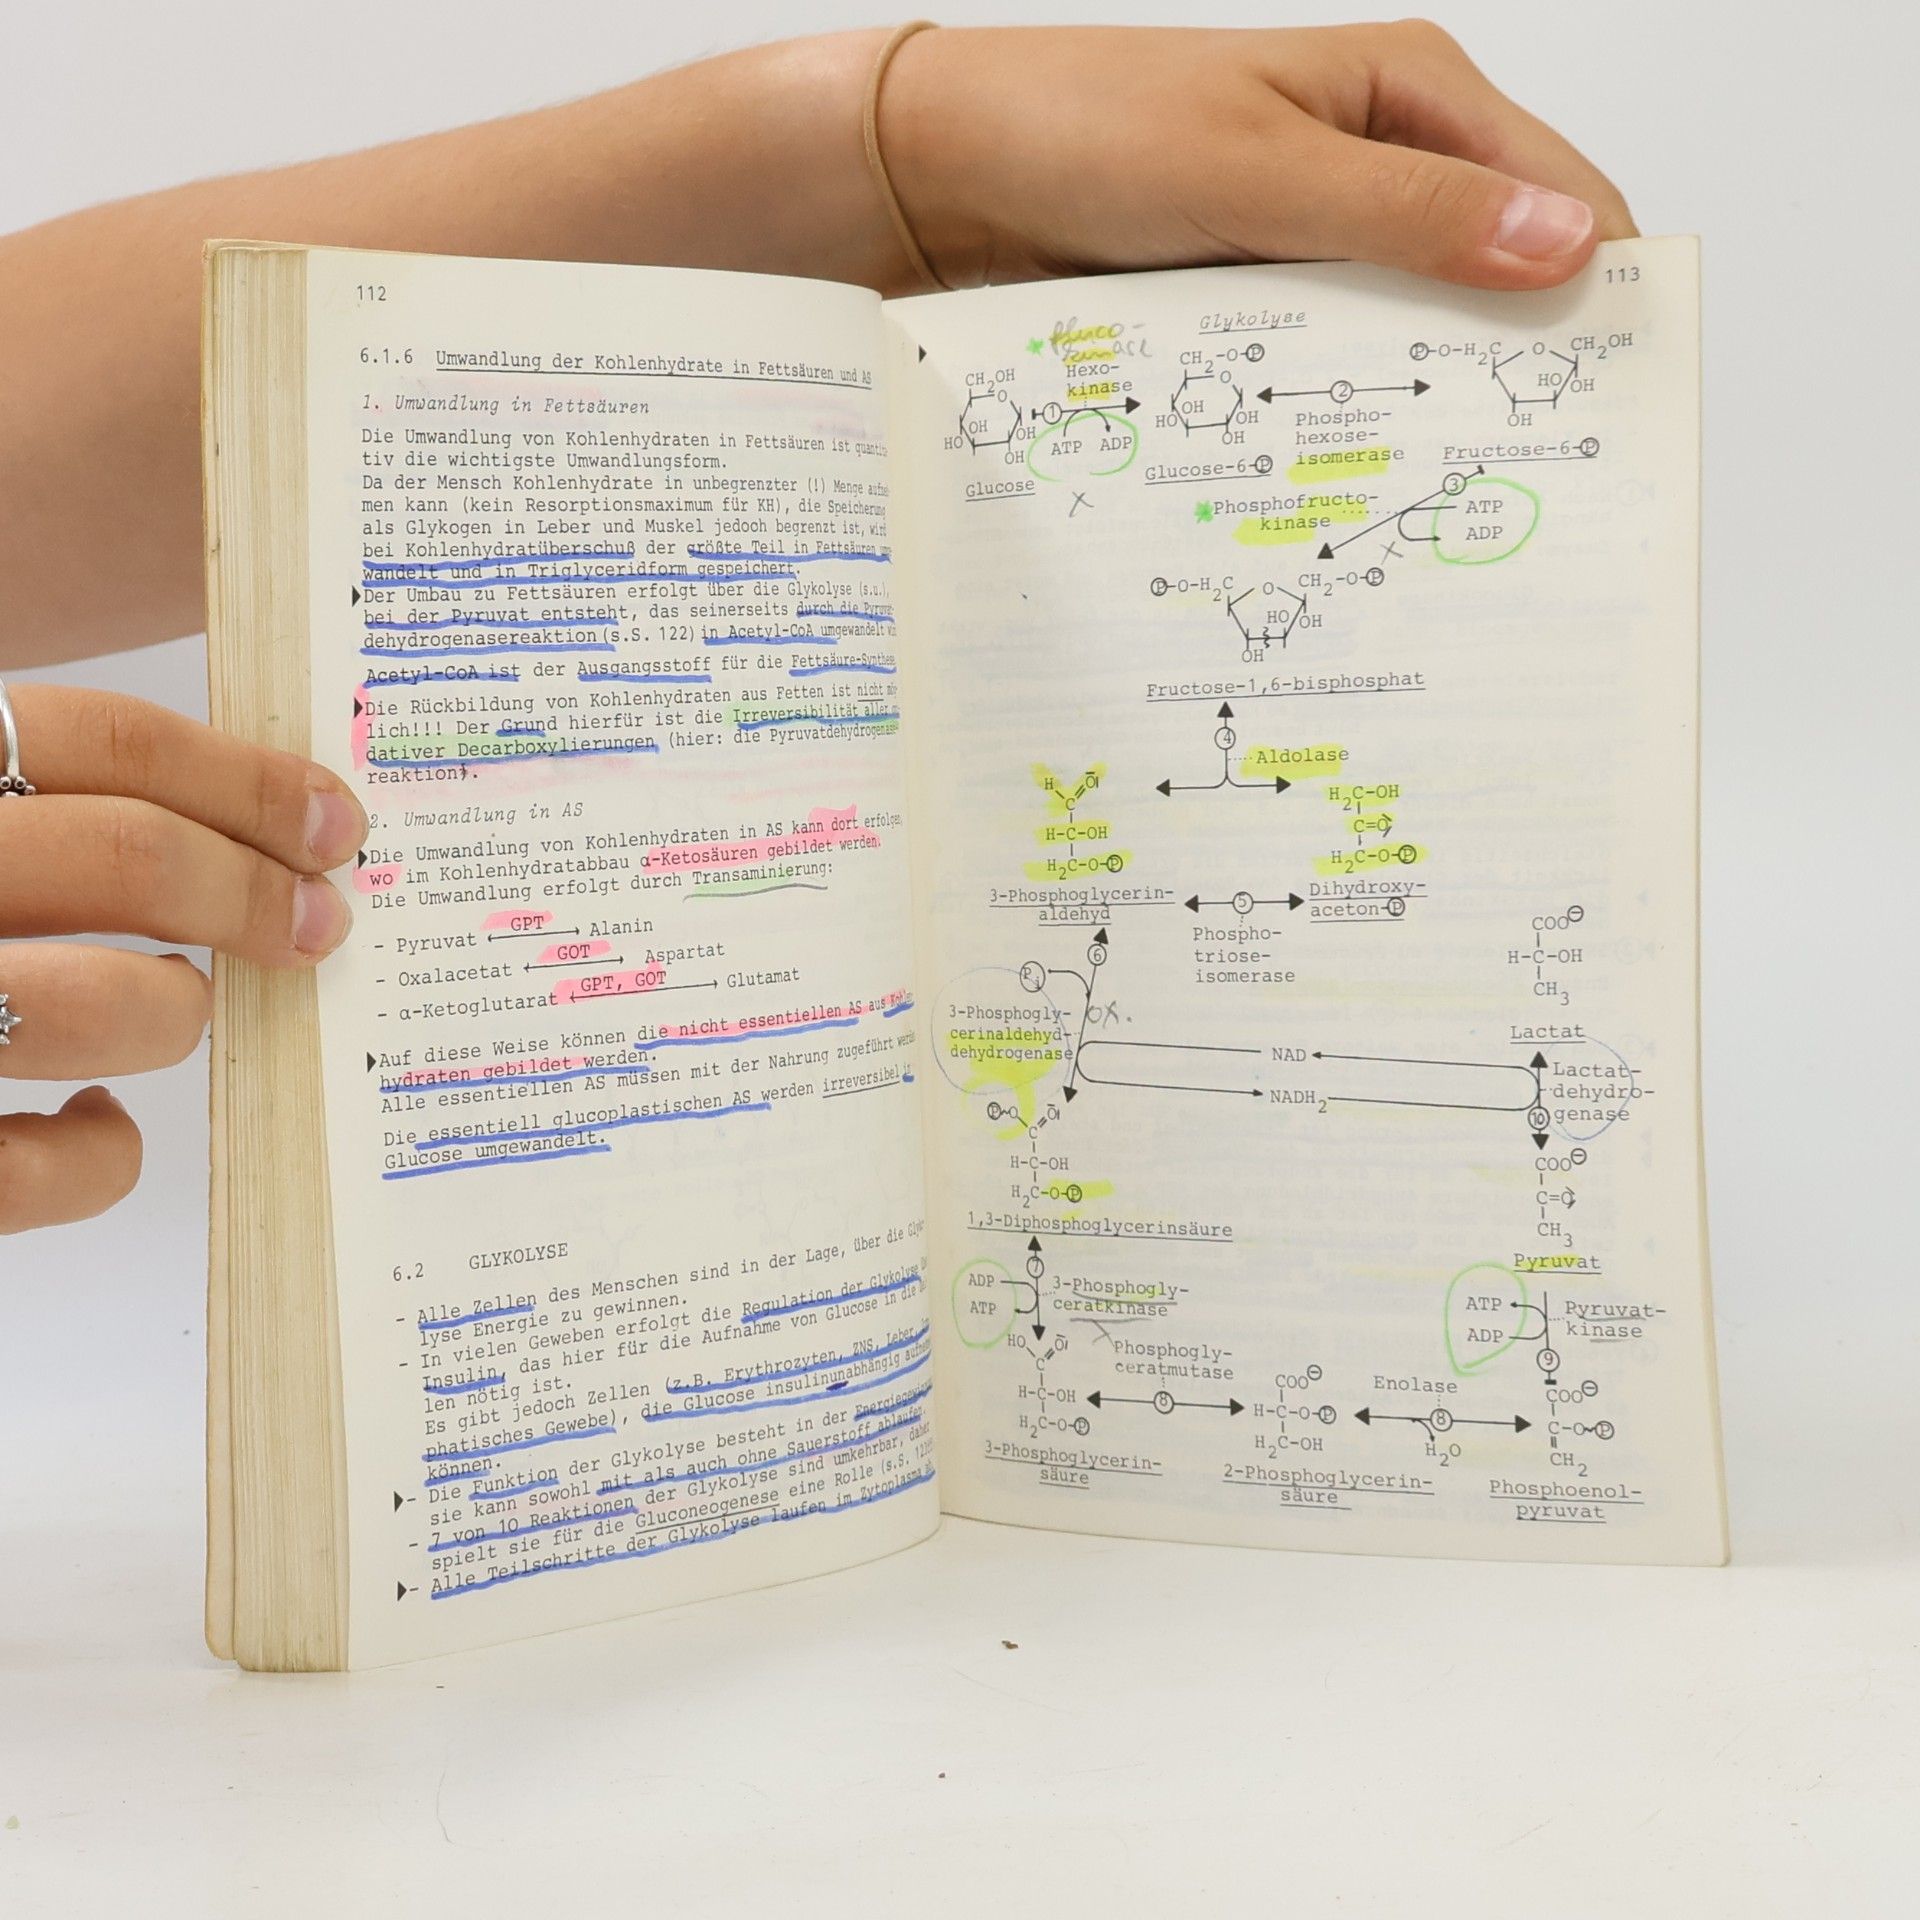 112
6.1.6 Umwandlung der Kohlenhydrate in Fettsäuren und AS
1. Umwandlung in Fettsäuren
Die Umwandlung von Kohlenhydraten in Fettsäuren ist
tiv die wichtigste Umwandlungsform.
Da der Mensch Kohlenhydrate in unbegrenzter (!) Menge
men kann (kein Resorptionsmaximum für KH), die Speicherung
als Glykogen in Leber und Muskel jedoch begrenzt ist, wird
bei Kohlenhydratüberschuß der größte Teil in Fettsäuren
wandelt und in Triglyceridform gespeichert.
Der Umbau zu Fettsäuren erfolgt über die Glykolyse (s.u.),
bei der Pyruvat entsteht, das seinerseits durch die
dehydrogenasereaktion (s.S. 122) in Acetyl-CoA umgewandelt
Acetyl-CoA ist der Ausgangsstoff für die Fettsäure-Synthese
Die Rückbildung von Kohlenhydraten aus Fetten ist nicht
lich!!! Der Grund hierfür ist die Irreversibilität aller
dativer Decarboxylierungen (hier: die
reaktion).
2. Umwandlung in AS
Die Umwandlung von Kohlenhydraten in AS kann dort erfolgen,
wo im Kohlenhydratabbau α-Ketosäuren gebildet werden.
Die Umwandlung erfolgt durch Transaminierung:
- Pyruvat GPT Alanin
- Oxalacetat GOT Aspartat
- α-Ketoglutarat GPT, GOT Glutamat
Auf diese Weise können die nicht essentiellen AS aus
hydraten gebildet werden.
Alle essentiellen AS müssen mit der Nahrung zugeführt
Die essentiell glucoplastischen AS werden irreversibel
Glucose umgewandelt.
6.2 GLYKOLYSE
- Alle Zellen des Menschen sind in der Lage, über die
lyse Energie zu gewinnen.
- In vielen Geweben erfolgt die Regulation der Glykolyse
Insulin, das hier für die Aufnahme von Glucose in die
len nötig ist.
Es gibt jedoch Zellen (z.B. Erythrozyten, ZNS, Leber,
phatisches Gewebe), die Glucose insulinunabhängig
können.
- Die Funktion der Glykolyse besteht in der
sie kann sowohl mit als auch ohne Sauerstoff ablaufen.
- 7 von 10 Reaktionen der Glykolyse sind umkehrbar, daher
spielt sie für die Gluconeogenese eine Rolle (s.S.
- Alle Teilschritte der Glykolyse laufen im Zytoplasma
113
Glykolyse
Hexo-
kinase
CH2OH
O
OH
HO
OH
OH
Glucose
1
ATP ADP
CH2-O-P
O
OH
HO
OH
OH
Glucose-6-P
2
Phospho-
hexose-
isomerase
P-O-H2C O CH2OH
HO OH
OH
Fructose-6-P
3
Phosphofructo-
kinase
ATP
ADP
P-O-H2C O CH2-O-P
HO OH
OH
Fructose-1,6-bisphosphat
4
Aldolase
H O
C
H-C-OH
H2C-O-P
3-Phosphoglycerin-
aldehyd
H2C-OH
C=O
H2C-O-P
Dihydroxy-
aceton-P
5
Phospho-
triose-
isomerase
6
Pi
3-Phosphogly-
cerinaldehyd-
dehydrogenase
ox.
NAD
NADH2
COO⊖
H-C-OH
CH3
Lactat
Lactat-
dehydro-
genase
10
COO⊖
C=O
CH3
Pyruvat
P~O O
C
H-C-OH
H2C-O-P
1,3-Diphosphoglycerinsäure
7
ADP
ATP
3-Phosphogly-
ceratkinase
HO O
C
H-C-OH
H2C-O-P
3-Phosphoglycerin-
säure
Phosphogly-
ceratmutase
8
COO⊖
H-C-O-P
H2C-OH
2-Phosphoglycerin-
säure
Enolase
8
H2O
ATP
ADP
Pyruvat-
kinase
9
COO⊖
C-O~P
CH2
Phosphoenol-
pyruvat